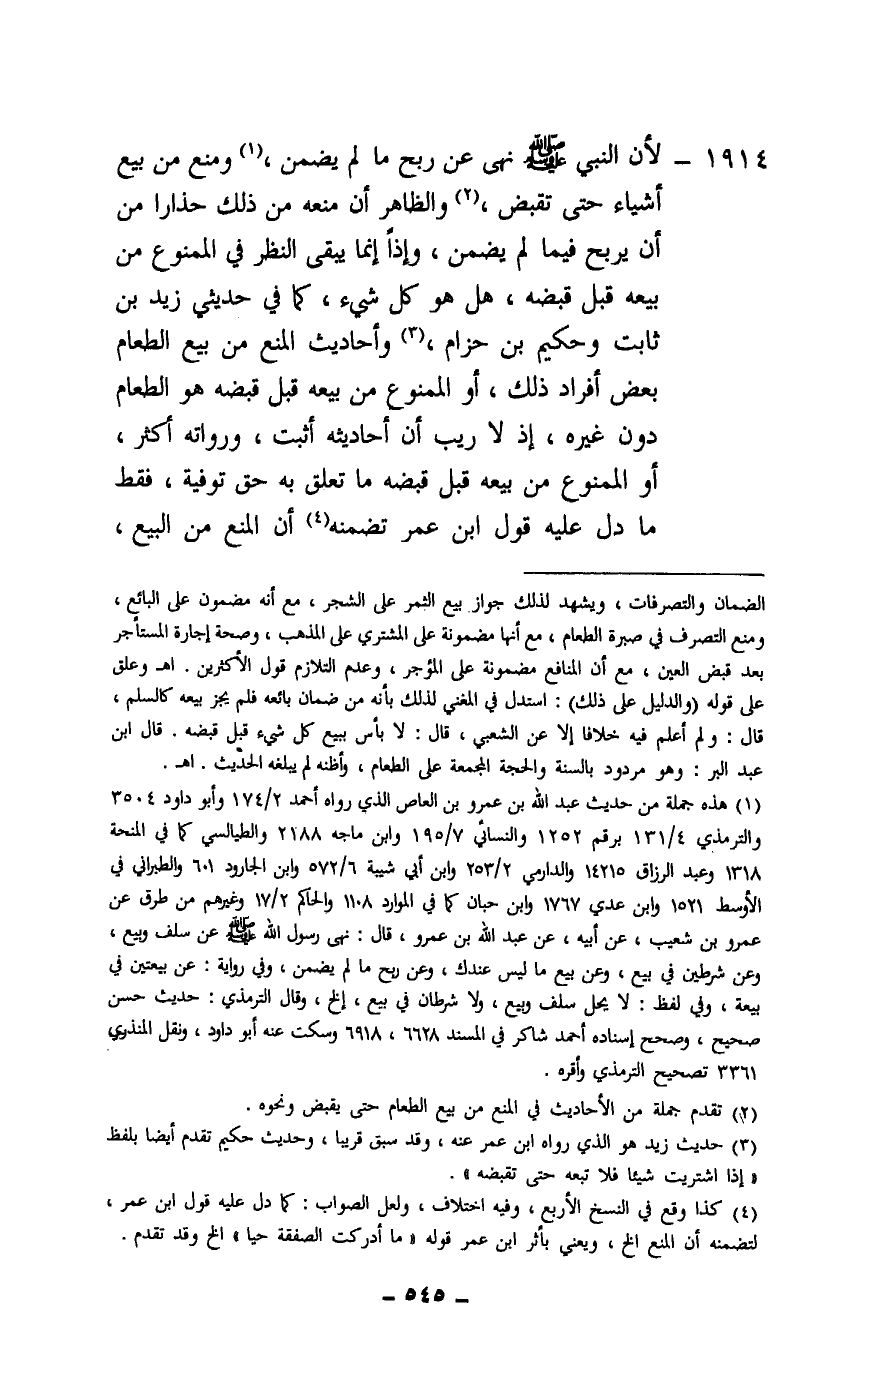 ١٩١٤ ـ لأن النبي ﷺ نهى عن ربح ما لم يضمن ،(١) ومنع من بيع
أشياء حتى تقبض ،(٢) والظاهر أن منعه من ذلك حذارا من
أن يربح فيما لم يضمن ، وإذاً إنما يبقى النظر في الممنوع من
بيعه قبل قبضه ، هل هو كل شيء ، كما في حديثي زيد بن
ثابت وحكيم بن حزام ،(٣) وأحاديث المنع من بيع الطعام
بعض أفراد ذلك ، أو الممنوع من بيعه قبل قبضه هو الطعام
دون غيره ، إذ لا ريب أن أحاديثه أثبت ، ورواته أكثر ،
أو الممنوع من بيعه قبل قبضه ما تعلق به حق توفية ، فقط
ما دل عليه قول ابن عمر تضمنه(٤) أن المنع من البيع ،
الضمان والتصرفات ، ويشهد لذلك جواز بيع الثمر على الشجر ، مع أنه مضمون على البائع ،
ومنع التصرف في صبرة الطعام ، مع أنها مضمونة على المشتري على المذهب ، وصحة إجارة المستأجر
بعد قبض العين ، مع أن المنافع مضمونة على المؤجر ، وعدم التلازم قول الأكثرين . اهـ وعلق
على قوله (والدليل على ذلك) : استدل في المغني لذلك بأنه من ضمان بائعه فلم يجز بيعه كالسلم ،
قال : ولم أعلم فيه خلافا إلا عن الشعبي ، قال : لا بأس ببيع كل شيء قبل قبضه . قال ابن
عبد البر : وهو مردود بالسنة والحجة المجمعة على الطعام ، وأظنه لم يبلغه الحديث . اهـ .
(١) هذه جملة من حديث عبد الله بن عمرو بن العاص الذي رواه أحمد ١٧٤/٢ وأبو داود ٣٥٠٤
والترمذي ١٣١/٤ برقم ١٢٥٢ والنسائي ١٩٥/٧ وابن ماجه ٢١٨٨ والطيالسي كما في المنحة
١٣١٨ وعبد الرزاق ١٤٢١٥ والدارمي ٢٥٣/٢ وابن أبي شيبة ٥٧٢/٦ وابن الجارود ٦٠١ والطبراني في
الأوسط ١٥٢١ وابن عدي ١٧٦٧ وابن حبان كما في الموارد ١١٠٨ والحاكم ١٧/٢ وغيرهم من طرق عن
عمرو بن شعيب ، عن أبيه ، عن عبد الله بن عمرو ، قال : نهى رسول الله ﷺ عن سلف وبيع ،
وعن شرطين في بيع ، وعن بيع ما ليس عندك ، وعن ربح ما لم يضمن ، وفي رواية : عن بيعتين في
بيعة ، وفي لفظ : لا يحل سلف وبيع ، ولا شرطان في بيع ، إلخ ، وقال الترمذي : حديث حسن
صحيح ، وصحح إسناده أحمد شاكر في المسند ٦٦٢٨ ، ٦٩١٨ وسكت عنه أبو داود ، ونقل المنذري
٣٣٦١ تصحيح الترمذي وأقره .
(٢) تقدم جملة من الأحاديث في المنع من بيع الطعام حتى يقبض ونحوه .
(٣) حديث زيد هو الذي رواه ابن عمر عنه ، وقد سبق قريبا ، وحديث حكيم تقدم أيضا بلفظ
« إذا اشتريت شيئا فلا تبعه حتى تقبضه » .
(٤) كذا وقع في النسخ الأربع ، وفيه اختلاف ، ولعل الصواب : كما دل عليه قول ابن عمر ،
لتضمنه أن المنع الخ ، ويعني بأثر ابن عمر قوله « ما أدركت الصفقة حيا » الخ وقد تقدم .
ـ ٥٤٥ ـ